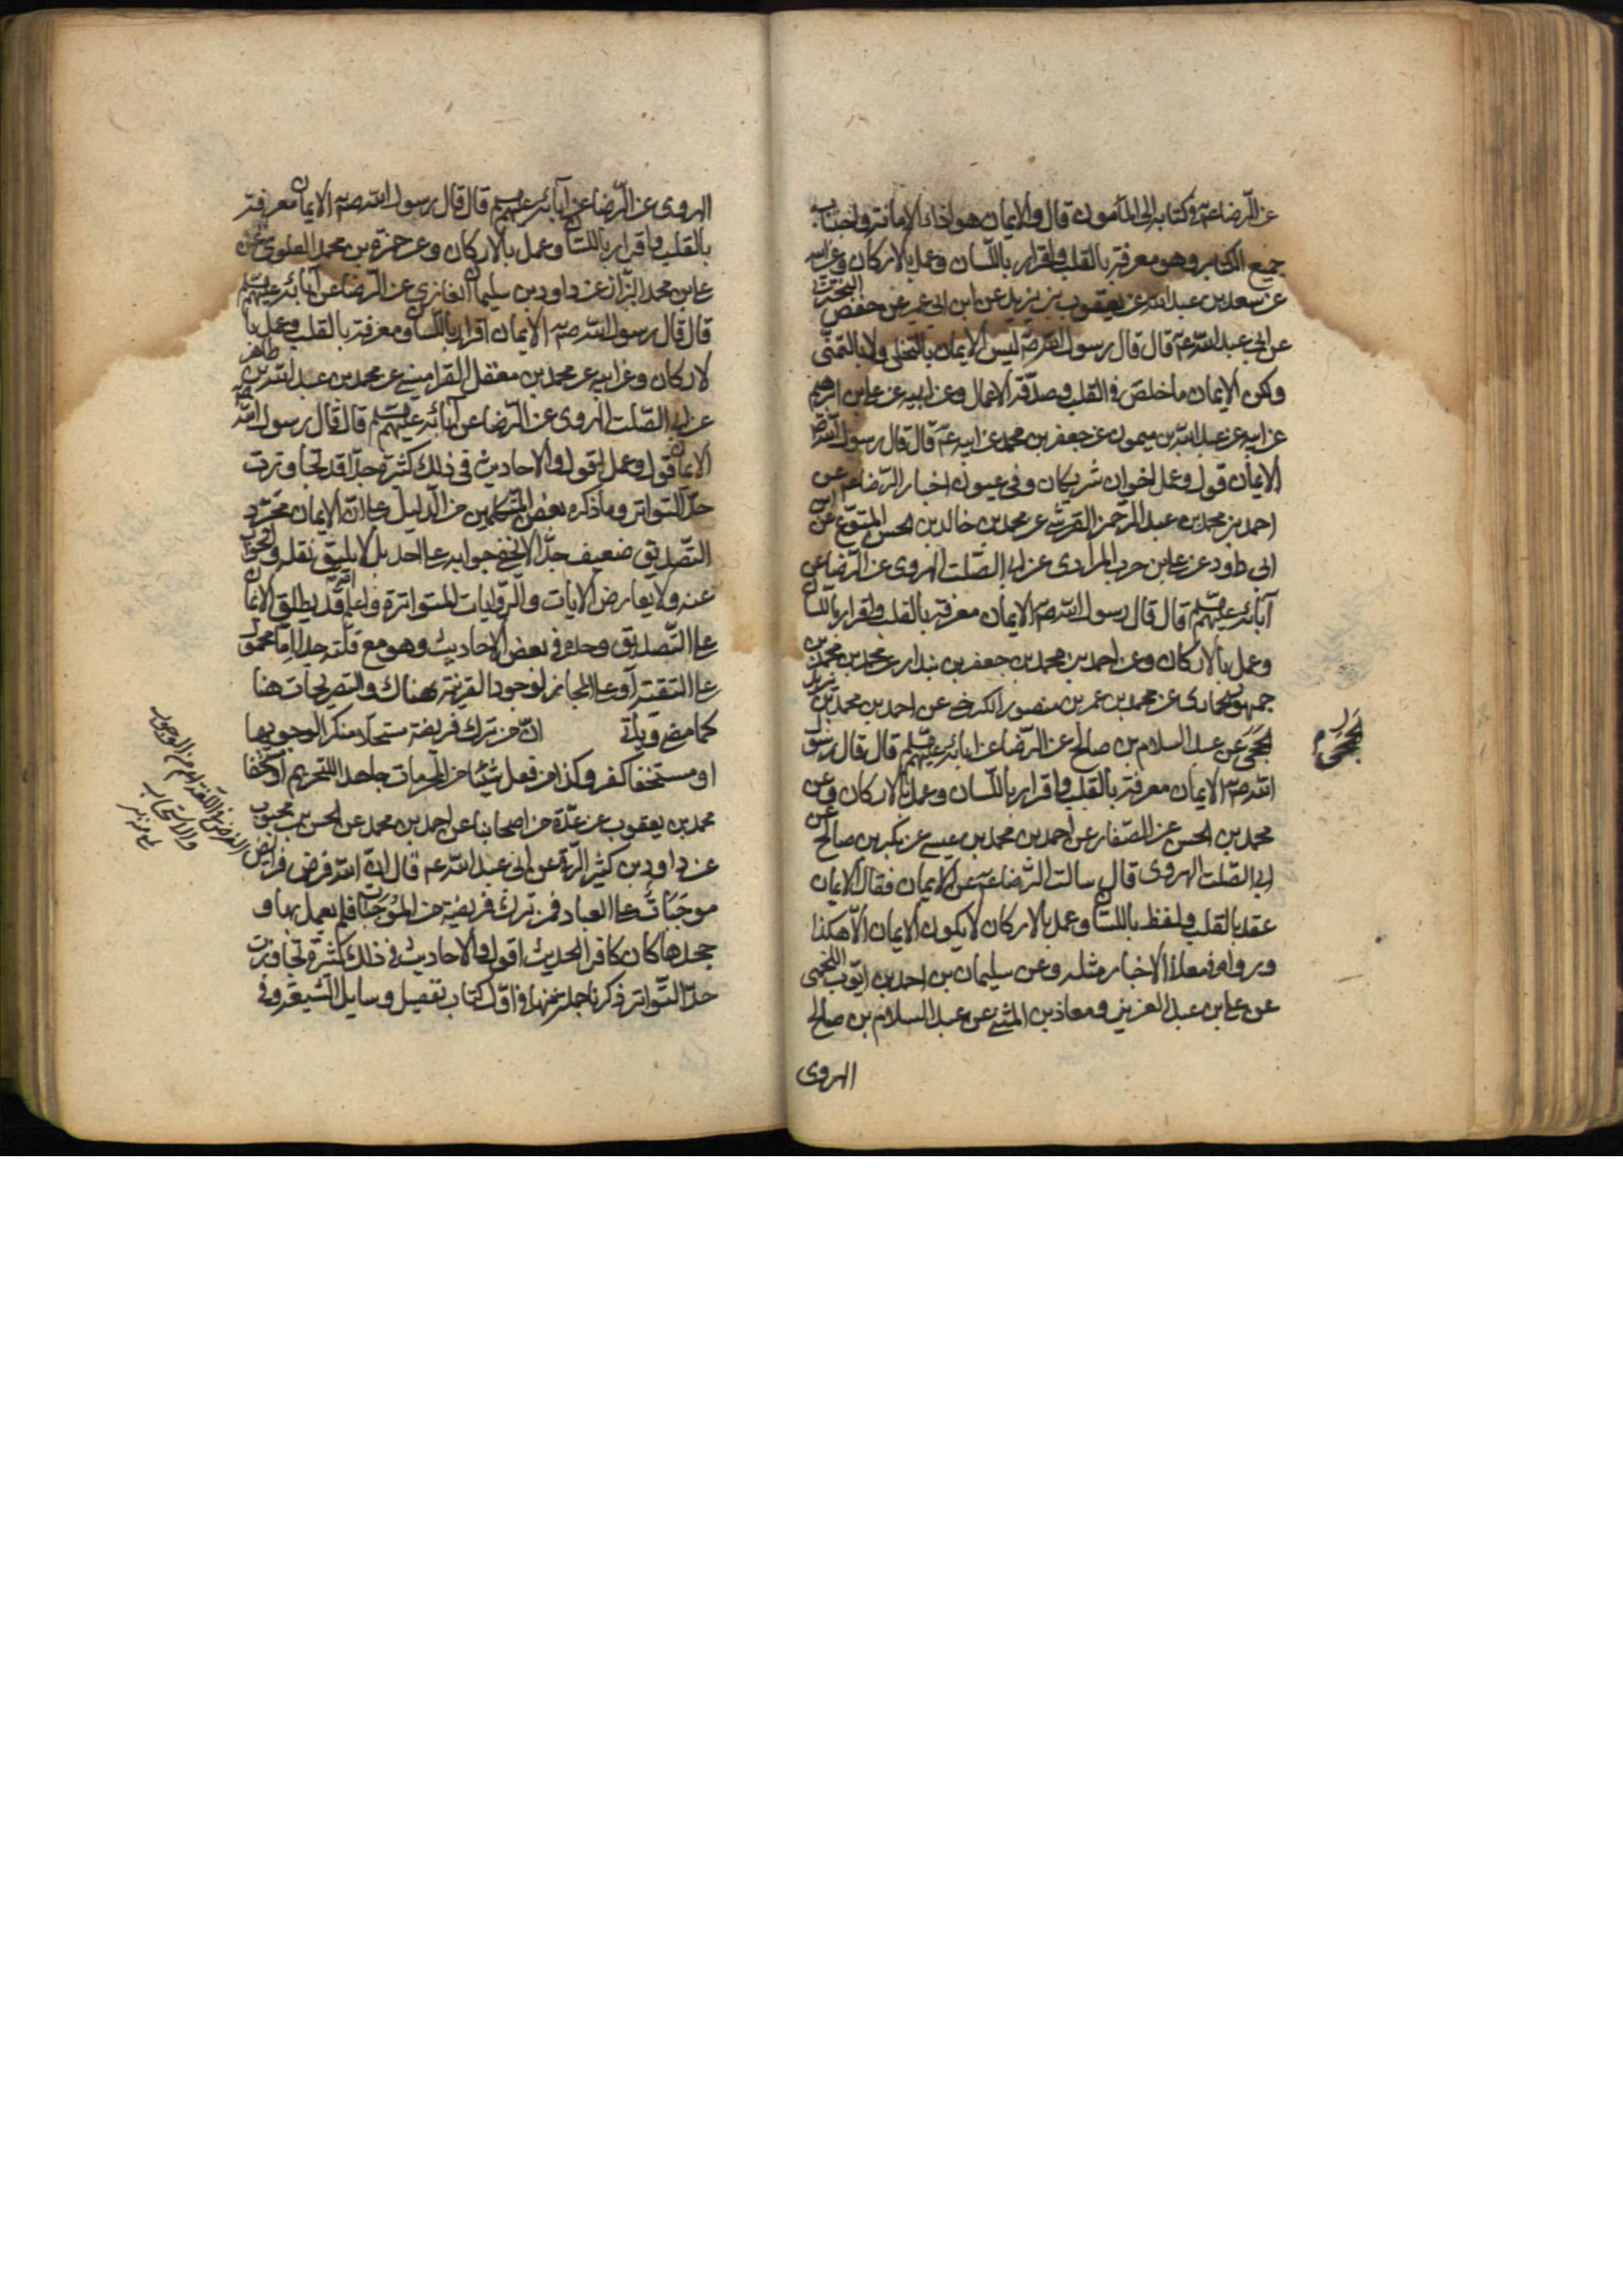 عن الرضا عم في كتابه الى المأمون قال والايمان هو اداء الامانة واجتناب
جميع الكباير وهو معرفة بالقلب واقرار باللسان وعمل بالاركان وعن ابيه
عن سعد بن عبد الله عن يعقوب بن يزيد عن ابن ابي عمير عن حفص البختري
عن ابي عبد الله عم قال قال رسول الله صم ليس الايمان بالتحلي ولا بالتمني
ولكن الايمان ما خلص في القلب وصدقه الاعمال وعن ابيه عن علي بن ابرهيم
عن ابيه عن عبد الله بن ميمون عن جعفر بن محمد عن ابيه عم قال قال رسول الله صم
الايمان قول وعمل اخوان شريكان وفي عيون اخبار الرضا عم عن
احمد بن محمد بن عبد الرحمن القرشي عن محمد بن خالد بن الحسن المتوعي عن ابن
ابي داود عن علي بن حرب الملادي عن ابي الصلت الهروي عن الرضا عن
آبائه عليهم السلم قال قال رسول الله صم الايمان معرفة بالقلب واقرار باللسان
وعمل بالاركان وعن احمد بن محمد بن جعفر بن بندار عن محمد بن محمد بن
جمهور الحمادي عن محمد بن عمر بن منصور الكرخي عن احمد بن محمد بن يزيد
الجمحي عن عبد السلام بن صالح عن الرضا عن ابائه عليهم السلم قال قال رسول
الله صم الايمان معرفة بالقلب واقرار باللسان وعمل بالاركان وعن
محمد بن الحسن عن الصفار عن احمد بن محمد بن عيسى عن بكر بن صالح عن
ابي الصلت الهروي قال سالت الرضا عم عن الايمان فقال الايمان
عقد بالقلب ولفظ باللسان وعمل بالاركان لا يكون الايمان الا هكذا
ورواه في معاني الاخبار مثله وعن سليمان بن احمد بن ايوب اللخمي
عن علي بن عبد العزيز ومعاذ بن المثنى عن عبد السلام بن صالح
الهروي
الجمحي
الهروي عن الرضا عن آبائه عليهم السلم قال قال رسول الله صم الايمان معرفة
بالقلب واقرار باللسان وعمل بالاركان وعن حمزة بن محمد العلوي عن
علي بن محمد البزاز عن داود بن سليمان الغازي عن الرضا عن آبائه عليهم السلم
قال قال رسول الله صم الايمان اقرار باللسان ومعرفة بالقلب وعمل با
لاركان وعن ابيه عن محمد بن معقل القرميسي عن محمد بن عبد الله بن طاهر
عن ابي الصلت الهروي عن الرضا عن آبائه عليهم السلم قال قال رسول الله صم
الايمان قول وعمل اقول والاحاديث في ذلك كثيرة جدا قد تجاوزت
حد التواتر وما ذكره بعض المتكلمين من الدليل على ان الايمان مجرد
التصديق ضعيف جدا لا يخفى جوابه على احد بل لا يليق نقله والجواب
عنه ولا يعارض الايات والروايات المتواترة واعلم انه قد يطلق الايمان
على التصديق وحده في بعض الاحاديث وهو مع قلته جدا اما محمول
على التقية او على المجاز لوجود القرينة هناك والتصريحات هنا
كما مضى وياتي ان من ترك فريضة مستحلا منكرا لوجوبها
او مستخفا كفر وكذا من فعل شيئا من المحرمات جاحدا للتحريم او مستخفا
محمد بن يعقوب عن عدة من اصحابنا عن احمد بن محمد عن الحسن بن محبوب
عن داود بن كثير الرقي عن ابي عبد الله عم قال ان الله فرض فرايض
موجبات على العباد فمن ترك فريضة من الموجبات فلم يعمل بها و
جحدها كان كافرا الحديث اقول والاحاديث في ذلك كثيرة تجاوزت
حد التواتر ذكرنا جملة منها في اول كتاب تفصيل وسايل الشيعة وفي
الفرض في اللغة اعم من الوجوب
والاستحباب